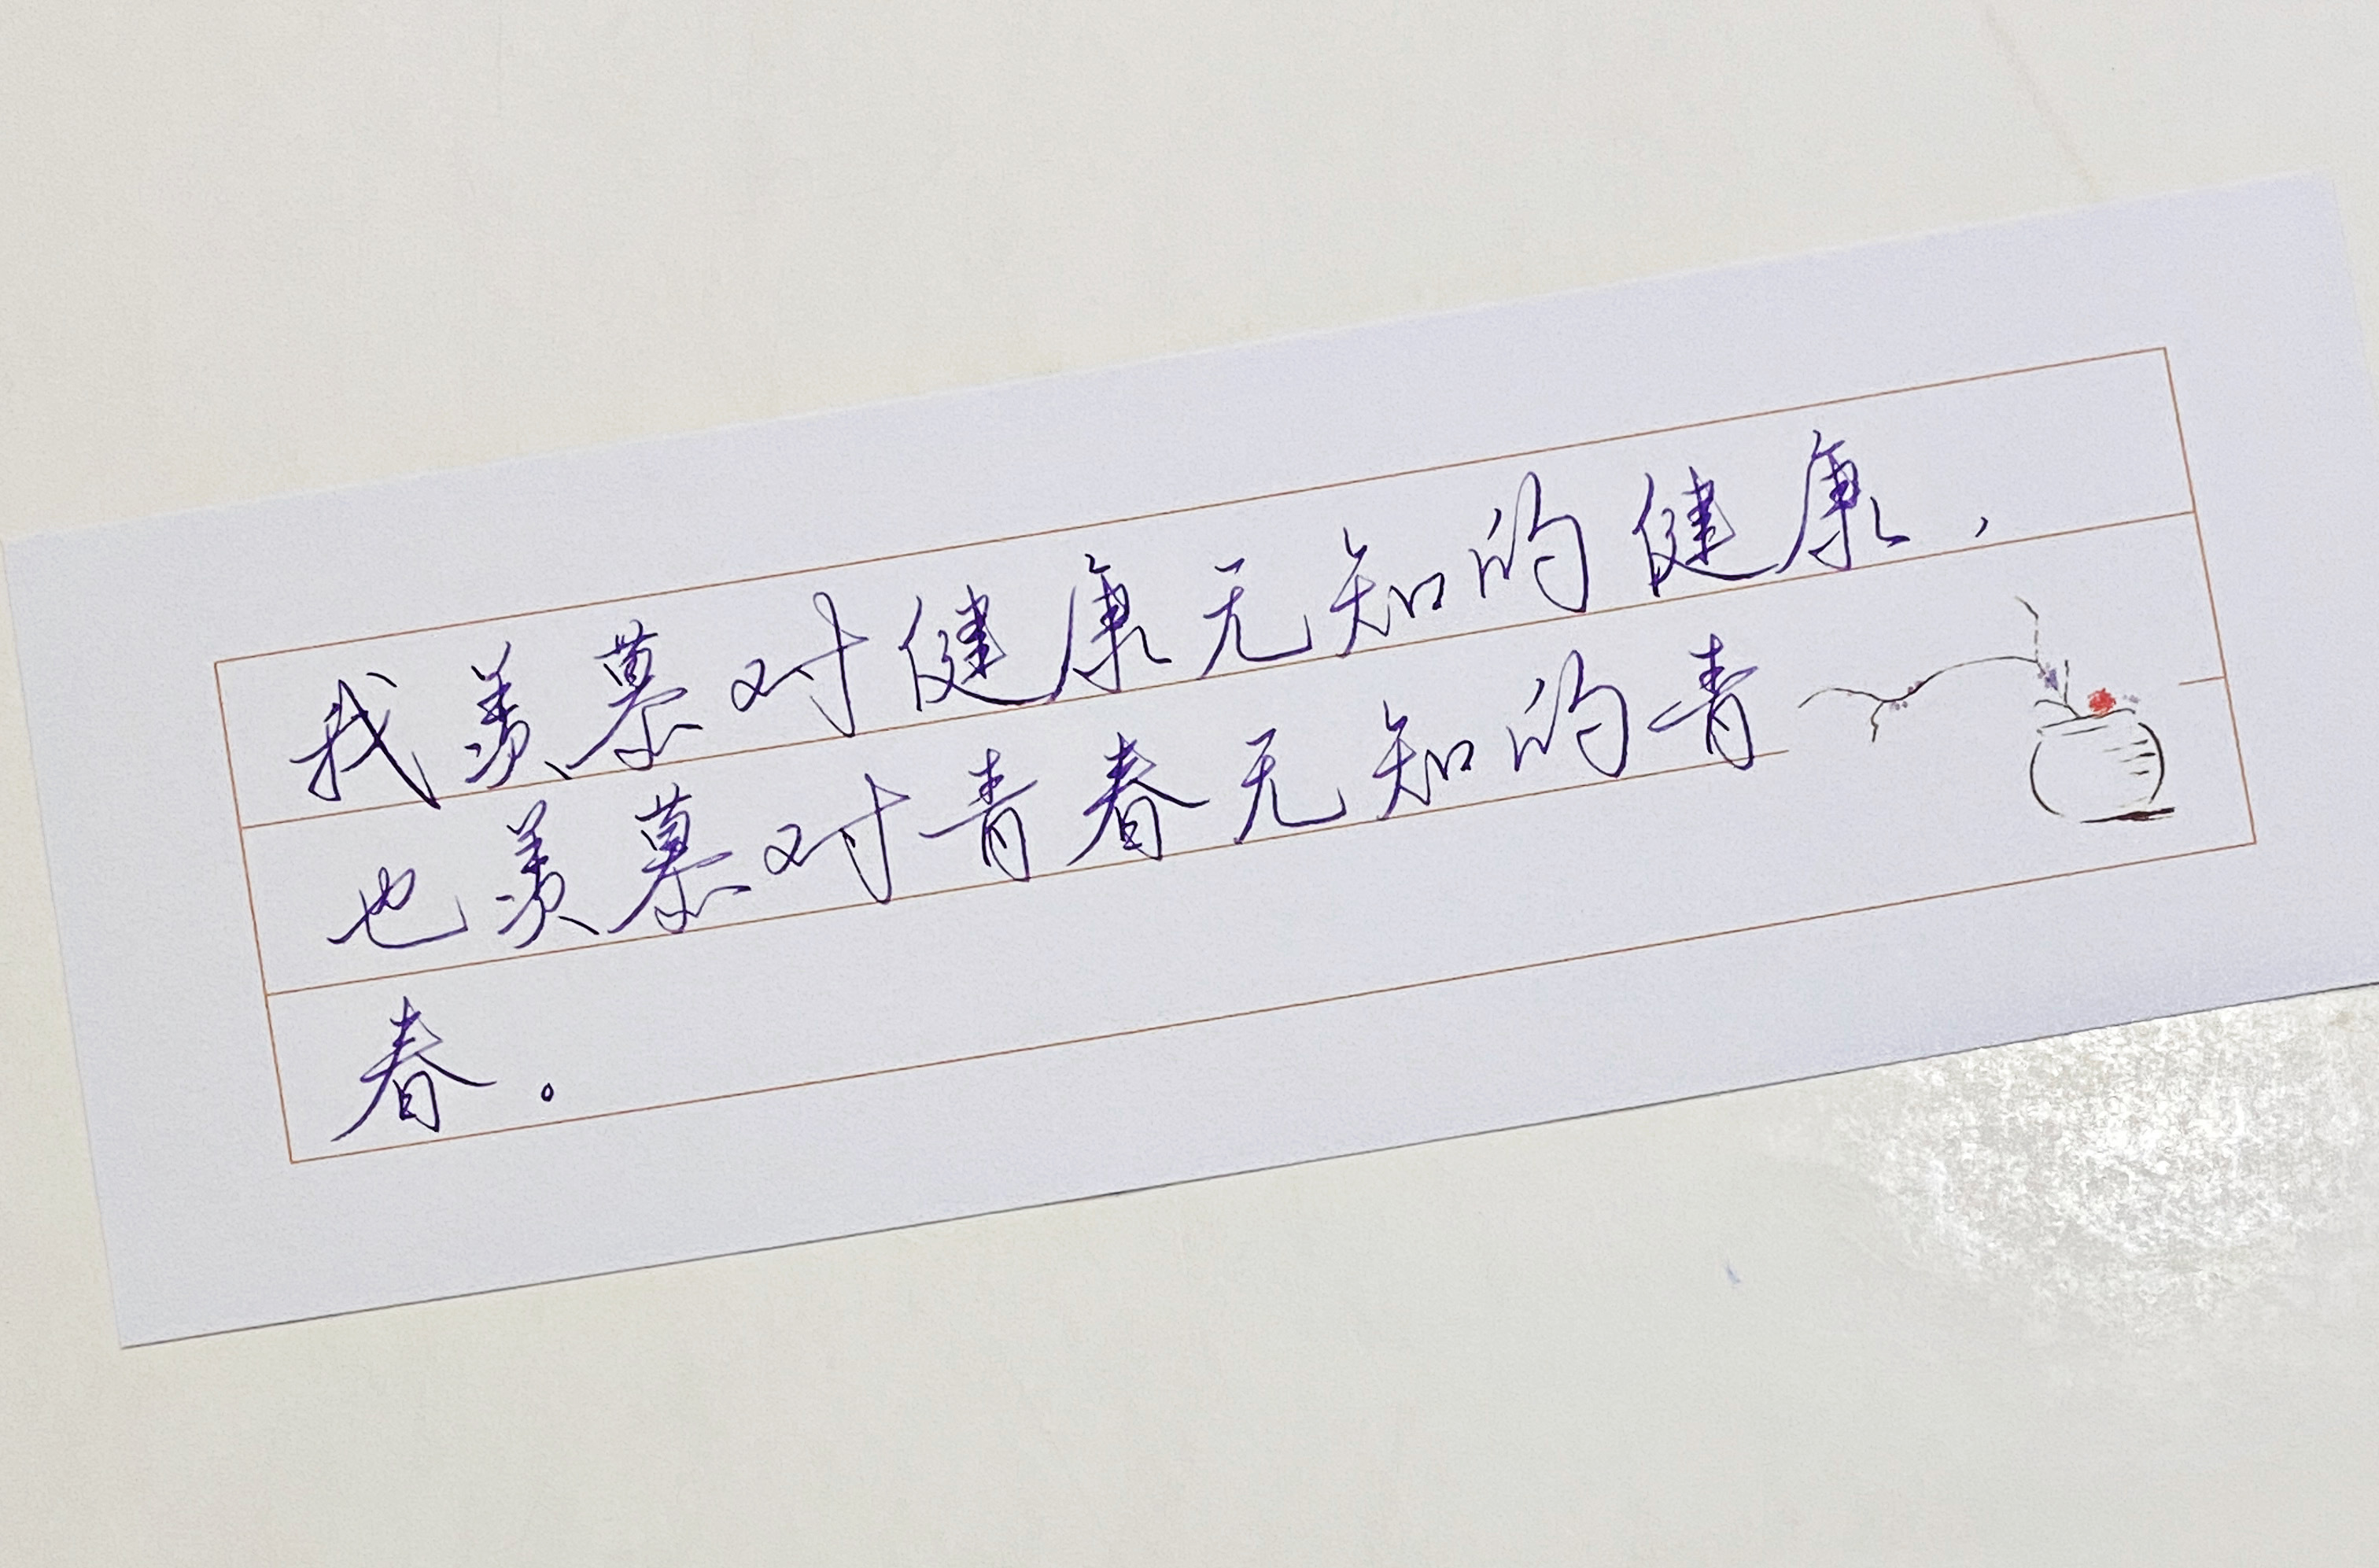 我羡慕对健康无知的健康，
也羡慕对青春无知的青
春。